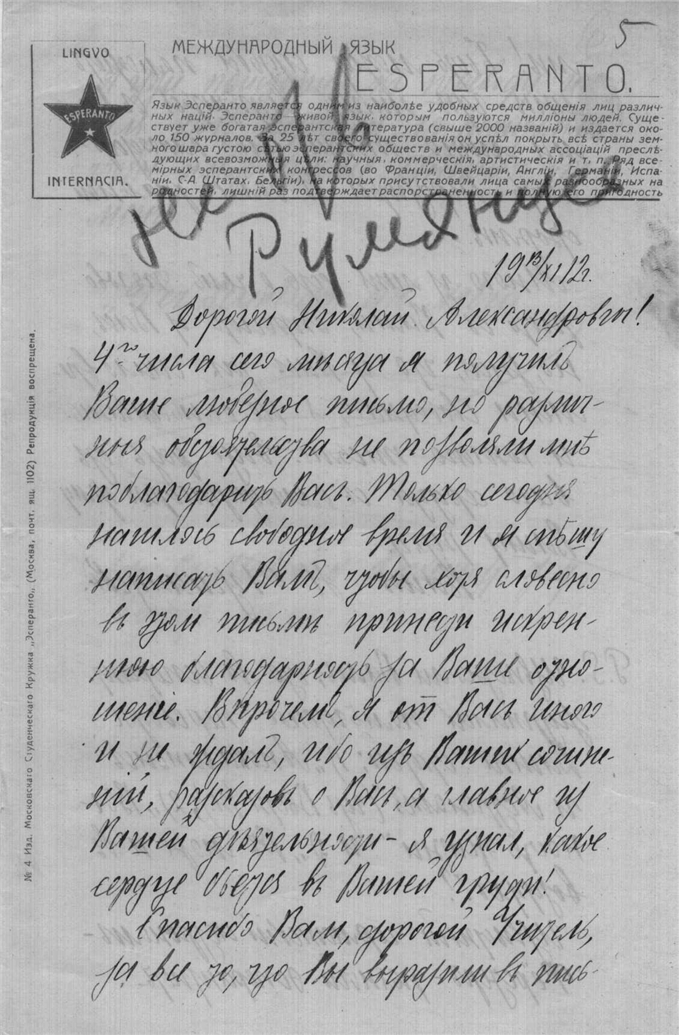 5
LINGVO
ESPERANTO
INTERNACIA.
МЕЖДУНАРОДНЫЙ ЯЗЫК
ESPERANTO.
Язык Эсперанто является одним из наиболѣе удобных средств общенія лиц различ-
ных націй. Эсперанто живой язык, которым пользуются милліоны людей. Суще-
ствует уже богатая эсперантская литература (свыше 2000 названій) и издается око-
ло 150 журналов. За 25 лѣт своего существованія он успѣл покрыть всѣ страны зем-
ного шара густою сѣтью эсперантских обществ и международных ассоціацій преслѣ-
дующих всевозможныя цѣли: научныя, коммерческія, артистическія и т. п. Ряд все-
мірных эсперантских конгрессов (во Франціи, Швейцаріи, Англіи, Германіи, Испа-
ніи, С-А Штатах, Бельгіи), на которых присутствовали лица самых разнообразных на
родностей, лишній раз подтверждает распространенность и полную его пригодность
не
Румянцев
19 13/XI 12г.
Дорогой Николай Александрович!
4го числа сего мѣсяца я получилъ
Ваше любезное письмо, но различ-
ныя обстоятельства не позволяли мнѣ
поблагодарить Васъ. Только сегодня
нашлось свободное время и я спѣшу
написать Вамъ, чтобы хотя словесно
въ этом письмѣ принести искрен-
нюю благодарность за Ваше отно-
шеніе. Впрочемъ, я от Васъ иного
и не ждалъ, ибо изъ Вашихъ сочине-
ній, разсказовъ о Васъ, а главное из
Вашей дѣятельности – я узнал, какое
сердце бьется въ Вашей груди!
Спасибо Вам, дорогой Учитель,
за все то, что Вы выразили въ пись-
№ 4 Изд. Московскаго Студенческаго Кружка „Эсперанто„ (Москва, почт. ящ. 1102) Репродукція воспрещена.